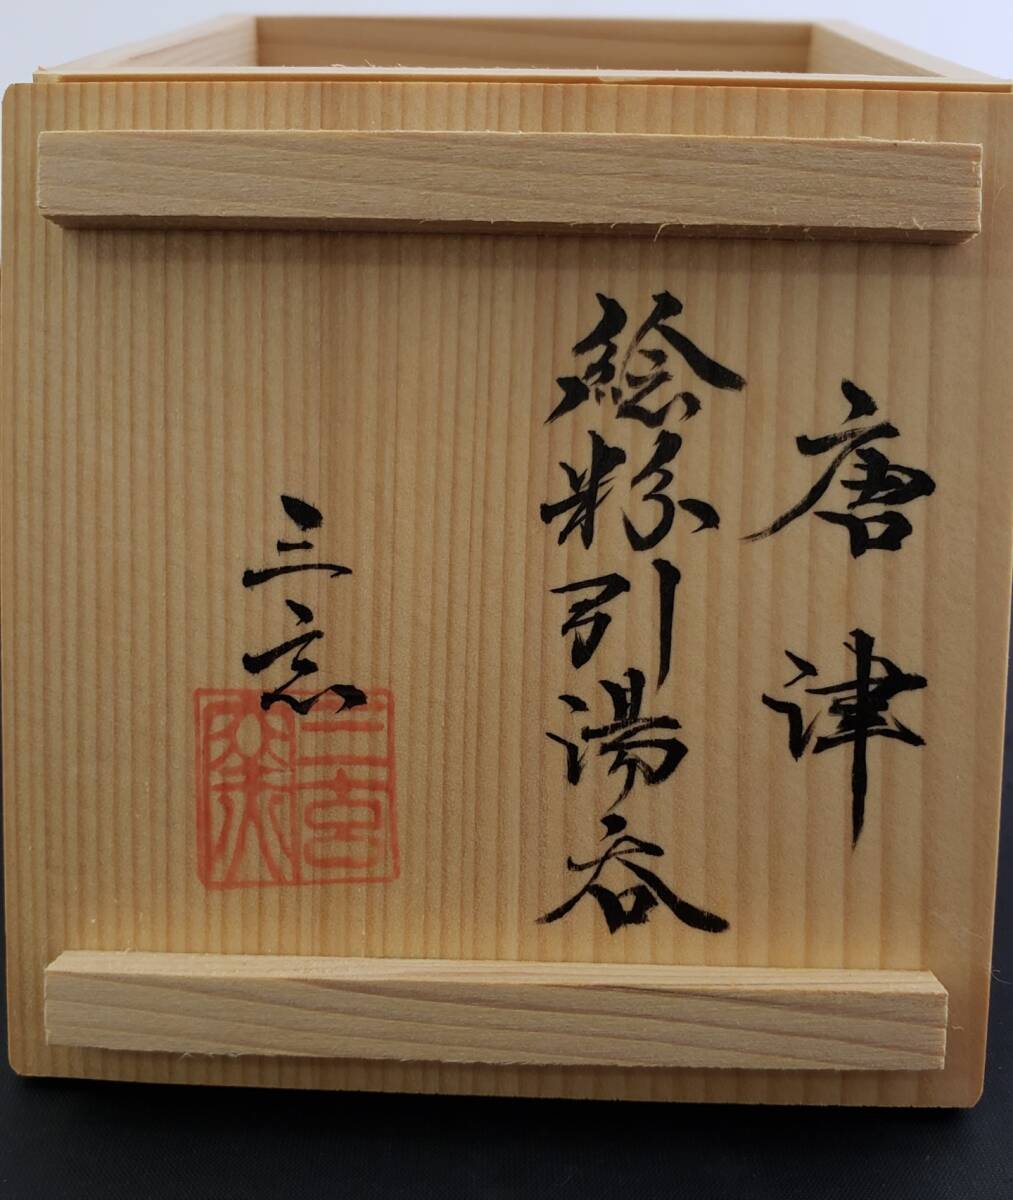 唐津
絵粉引湯呑
三玄
三玄窯